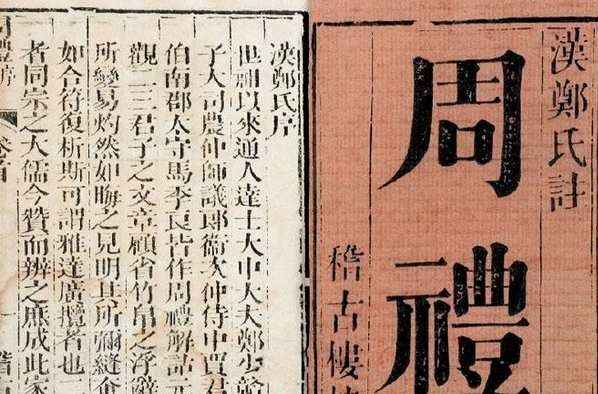 漢鄭氏註
周禮
稽古樓
漢鄭氏序
世祖以來通人達士大中大夫鄭少贛
子大司農仲師議郎衞次仲侍中賈君
伯南郡太守馬季長皆作周禮解詁元
觀二三君子之文章顧省竹帛之浮辭
所變易灼然如晦之見明其所彌縫奄
如合符復析斯可謂雅達廣攬者也二
者同宗之大儒今贊而辨之庶成此家
周禮序 卷首 一 稽古